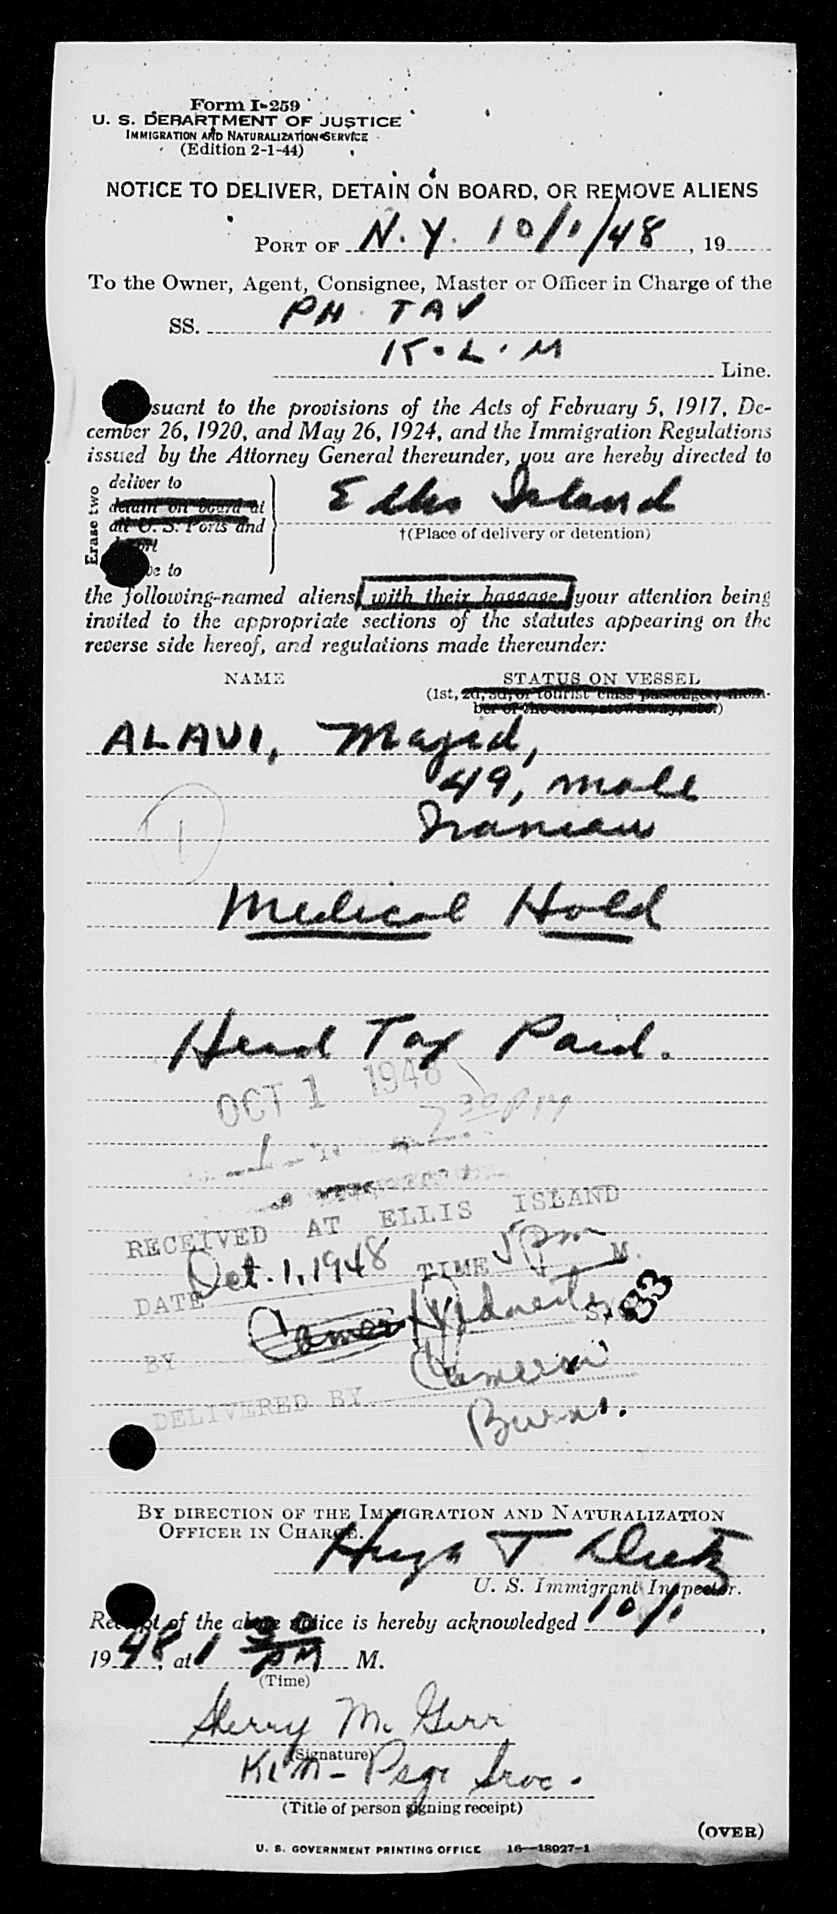 Form I-259
U. S. DEPARTMENT OF JUSTICE
IMMIGRATION AND NATURALIZATION SERVICE
(Edition 2-1-44)
NOTICE TO DELIVER, DETAIN ON BOARD, OR REMOVE ALIENS
PORT OF N.Y. 10/1/48, 19
To the Owner, Agent, Consignee, Master or Officer in Charge of the
SS. PH TAV
K.L.M Line.
suant to the provisions of the Acts of February 5, 1917, De-
cember 26, 1920, and May 26, 1924, and the Immigration Regulations
issued by the Attorney General thereunder, you are hereby directed to
Erase two
deliver to
detain on board at
all U. S. Ports and
Ellis Island
†(Place of delivery or detention)
to
the following-named aliens with their baggage, your attention being
invited to the appropriate sections of the statutes appearing on the
reverse side hereof, and regulations made thereunder:
NAME STATUS ON VESSEL
(1st, 2d, 3d, or tourist class passenger, mem-
ber of the crew, stowaway, etc.)
ALAVI, Majid,
49, male
Iranian
1
Medical Hold
Head Tax Paid.
OCT 1 1948
30 PM
RECEIVED AT ELLIS ISLAND
DATE Oct. 1, 1948 TIME 5 pm M.
33
BY
Cameron
DELIVERED BY
Burns.
BY DIRECTION OF THE IMMIGRATION AND NATURALIZATION
OFFICER IN CHARGE.
Hugo T
U. S. Immigrant Inspector.
Receipt of the above notice is hereby acknowledged 10/1,
1948, at 1 30 PM M.
(Time)
(Signature)
KLM - Psgr Srvc.
(Title of person signing receipt)
(OVER)
U. S. GOVERNMENT PRINTING OFFICE 16—18027-1